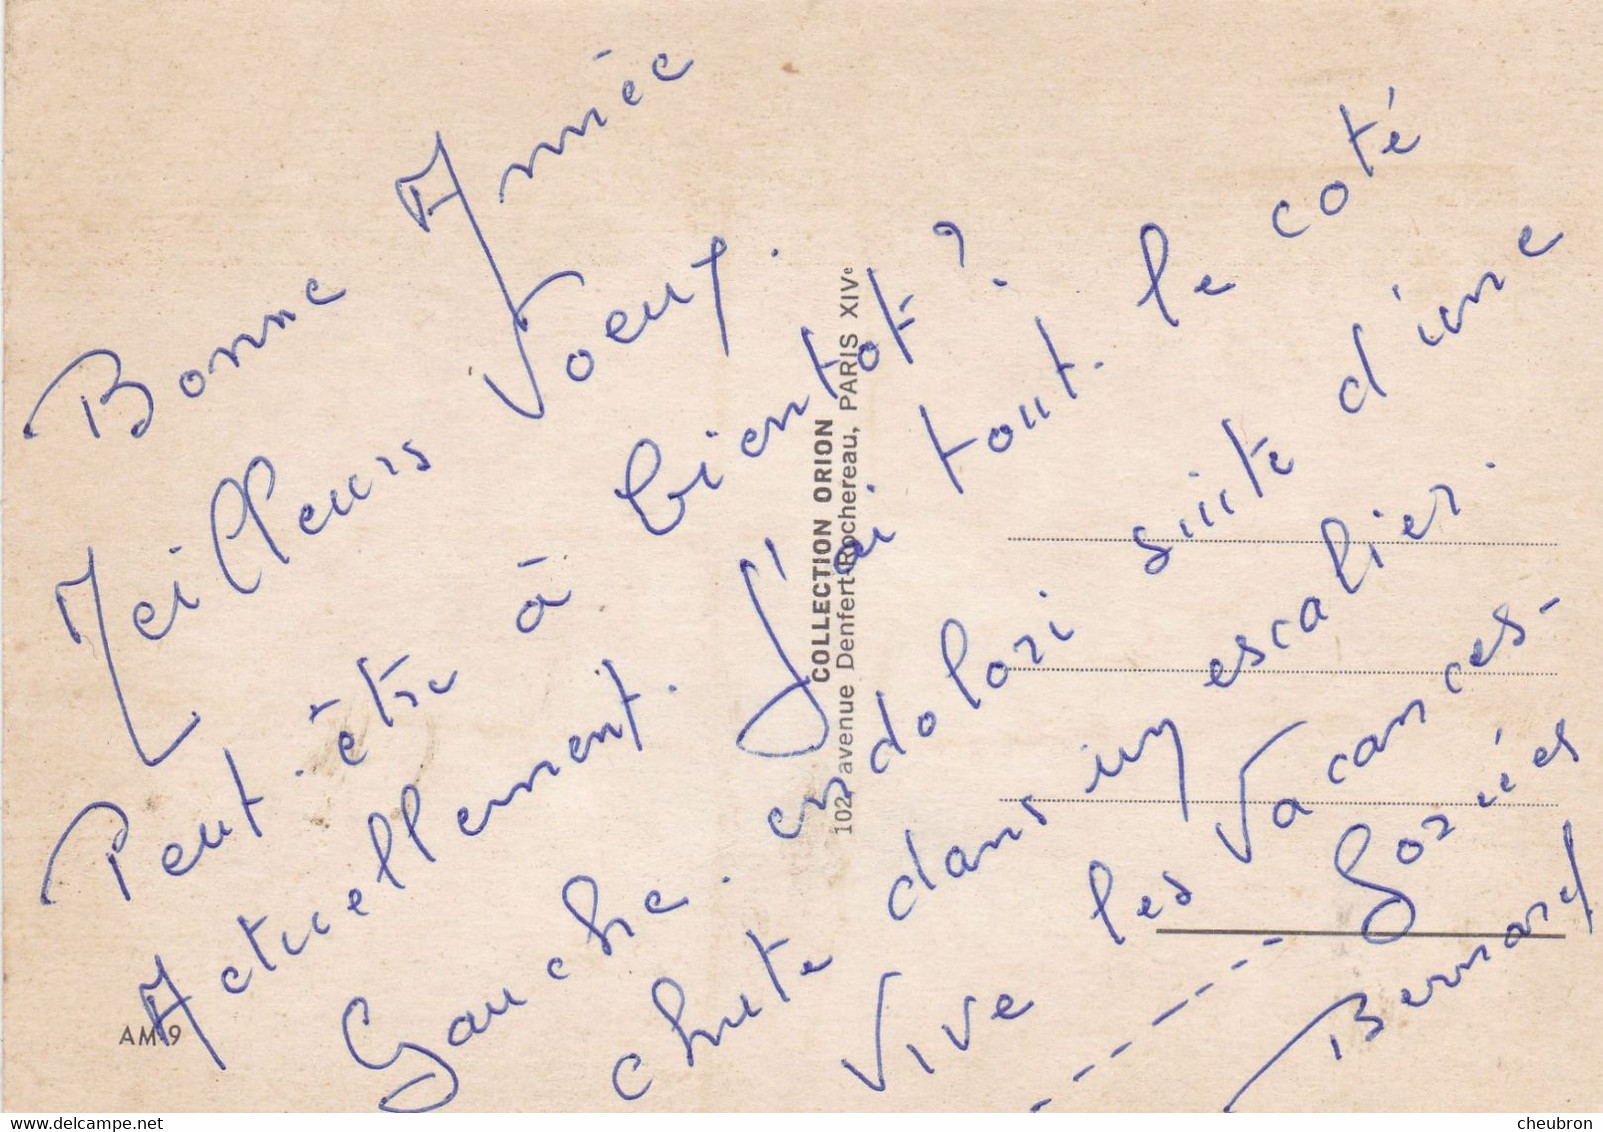 Bonne Année
Meilleurs Voeux.
Peut-être à bientot ?
Actuellement. J'ai tout. le coté
Gauche. endolori suite d'une
chute dans un escalier.
Vive les Vacances-
------ Forcées
Bernard
COLLECTION ORION
102, avenue Denfert-Rochereau, PARIS XIVe
AM 9
www.delcampe.net
cheubron